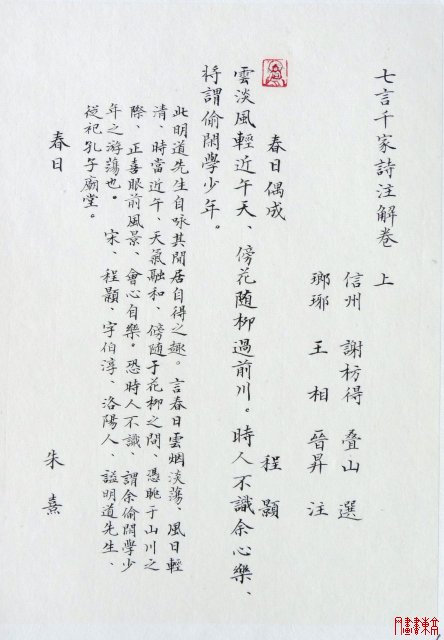 七言千家詩注解卷 上
信州 謝枋得 叠山 選
瑯琊 王 相 晉昇 注
春日偶成 程 顥
雲淡風輕近午天、傍花随柳過前川。時人不識余心樂、
将謂偷閑學少年。
此明道先生自咏其閒居自得之趣。言春日雲烟淡蕩、風日輕
清、時當近午、天氣融和、傍随于花柳之間、憑眺于山川之
際、正喜眼前風景、會心自樂。恐時人不識、謂余偷閒學少
年之游蕩也。 宋、程顥、字伯淳、洛陽人、謚明道先生、
從祀孔子廟堂。
春日 朱 熹